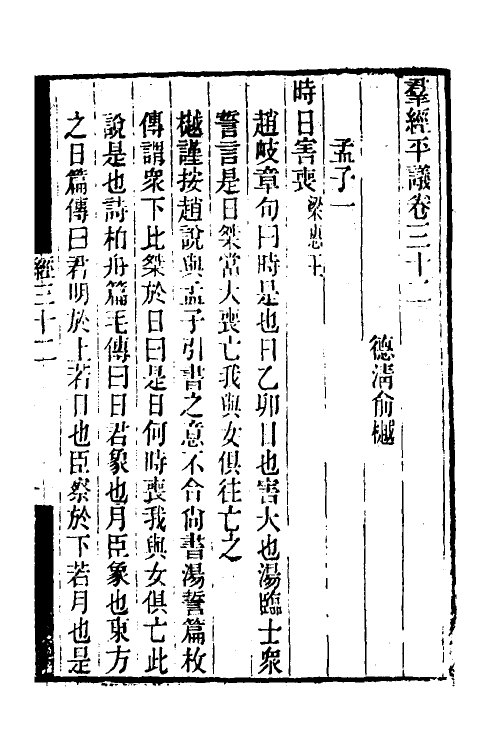 羣經平議卷三十二
德清俞樾
孟子一
時日害喪梁惠王
趙岐章句曰時是也日乙卯日也害大也湯臨士衆
誓言是日桀當大喪亡我與女俱往亡之
樾謹按趙說與孟子引書之意不合尙書湯誓篇枚
傳謂衆下比桀於日曰是日何時喪我與女俱亡此
說是也詩柏舟篇毛傳曰日君象也月臣象也東方
之日篇傳曰君明於上若日也臣察於下若月也是
經三十二
一